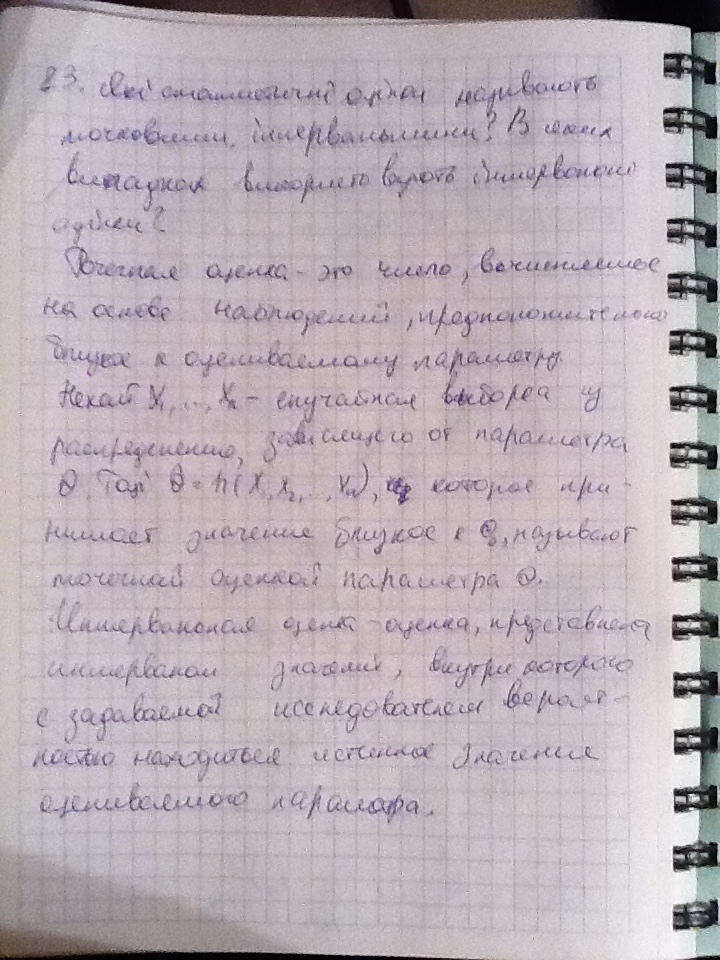 23. Які статистичні оцінки називають
точковими, інтервальними? В яких
випадках використовують інтервальні
оцінки?
Точечная оценка - это число, вычисленное
на основе наблюдений, предположительно
близкое к оцениваемому параметру
Нехай X₁, ..., Xₙ - случайная выборка з
распределению, зависящего от параметра
θ. Тоді θ = h(X₁, X₂, ..., Xₙ), которое при-
нимает значение близкое к θ, называют
точечной оценкой параметра θ.
Интервальная оценка, представляет
интервалом значений, внутри которого
с задаваемой исследователем вероят-
ностью находится истинное значение
оцениваемого параметра.